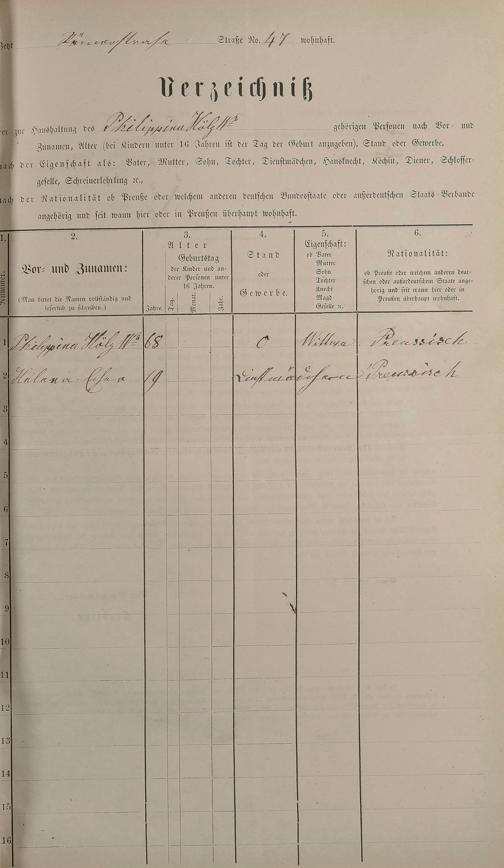 Jetzt Römerstraße Straße No. 47 wohnhaft.
Verzeichniß
der zur Haushaltung des Philippina Hölz Ww gehörigen Personen nach Vor- und
Zunamen, Alter (bei Kindern unter 16 Jahren ist der Tag der Geburt anzugeben), Stand oder Gewerbe,
nach der Eigenschaft als: Vater, Mutter, Sohn, Tochter, Dienstmädchen, Hausknecht, Köchin, Diener, Schlosser-
geselle, Schreinerlehrling ꝛc.,
nach der Nationalität ob Preuße oder welchem anderen deutschen Bundesstaate oder außerdeutschen Staats-Verbande
angehörig und seit wann hier oder in Preußen überhaupt wohnhaft.
1.
Nummer.
2.
Vor- und Zunamen:
(Man bittet die Namen vollständig und
leserlich zu schreiben.)
3.
Alter
Jahre
Geburtstag
der Kinder und an-
derer Personen unter
16 Jahren.
Tag.
Monat.
Jahr.
4.
Stand
oder
Gewerbe.
5.
Eigenschaft:
ob Vater
Mutter
Sohn
Tochter
Knecht
Magd
Geselle ꝛc.
6.
Nationalität:
ob Preuße oder welchem anderen deut-
schen oder außerdeutschen Staate ange-
hörig und seit wann hier oder in
Preußen überhaupt wohnhaft.
1 Philippina Hölz Ww 68 0 Wittwe Preussisch
2 Helena 19 Dinstmädchern Preussisch
3
4
5
6
7
8
9
10
11
12
13
14
15
16